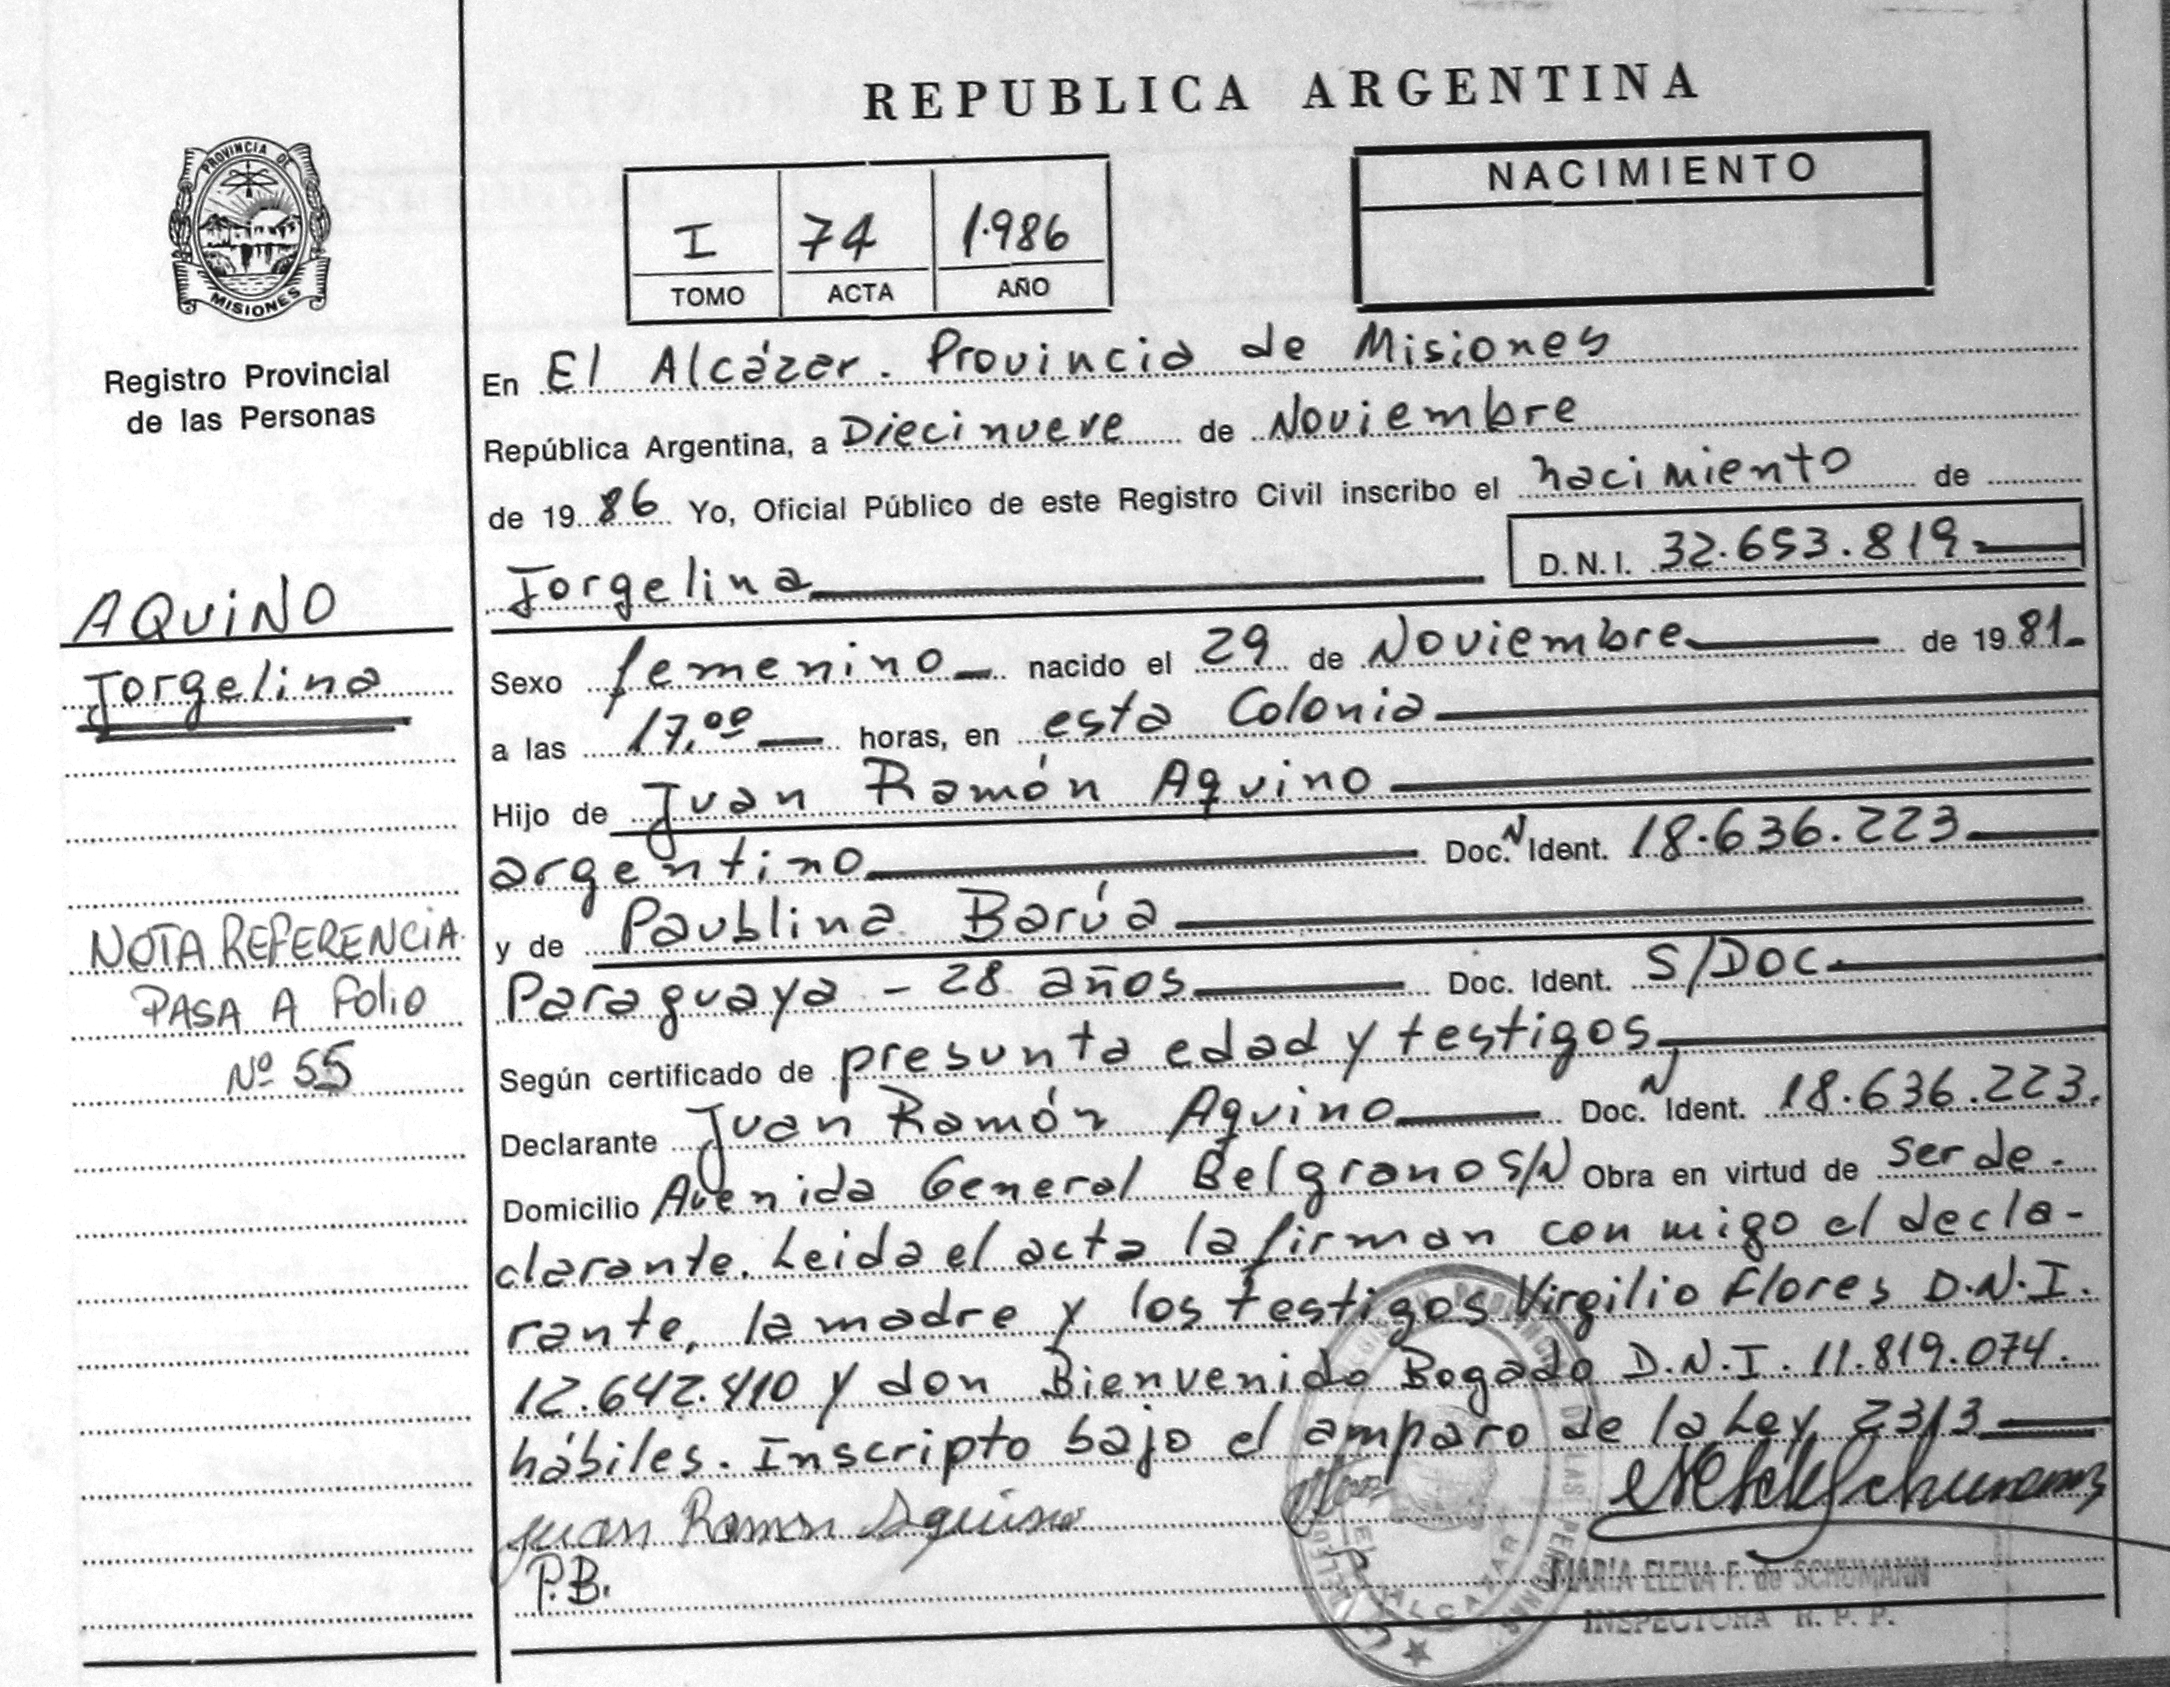 REPUBLICA ARGENTINA
PROVINCIA DE
MISIONES
Registro Provincial
de las Personas
I 74 1.986
TOMO ACTA AÑO
NACIMIENTO
En El Alcázar. Provincia de Misiones
República Argentina, a Diecinueve de Noviembre
de 1986 Yo, Oficial Público de este Registro Civil inscribo el nacimiento de
Jorgelina D.N.I. 32.653.819.
AQUINO
Jorgelina
Sexo femenino nacido el 29 de Noviembre de 1981.
a las 17,00 horas, en esta Colonia
Hijo de Juan Ramón Aquino
argentino Doc. N Ident. 18.636.223
y de Paublina Barúa
Paraguaya - 28 años Doc. Ident. S/DOC.
NOTA REFERENCIA
PASA A Folio
Nº 55
Según certificado de presunta edad y testigos,
Declarante Juan Ramón Aquino Doc. N Ident. 18.636.223.
Domicilio Avenida General Belgrano S/N Obra en virtud de ser de.
clarante. Leida el acta la firman con migo el decla-
rante, la madre y los testigos Virgilio Flores D.N.I.
12.642.410 y don Bienvenido Bogado D.N.I. 11.819.074.
hábiles. Inscripto bajo el amparo de la Ley 2313
Juan Ramon Aquino
P.B.
MARIA ELENA F. de SCHUMANN
INSPECTORA R. P. P.